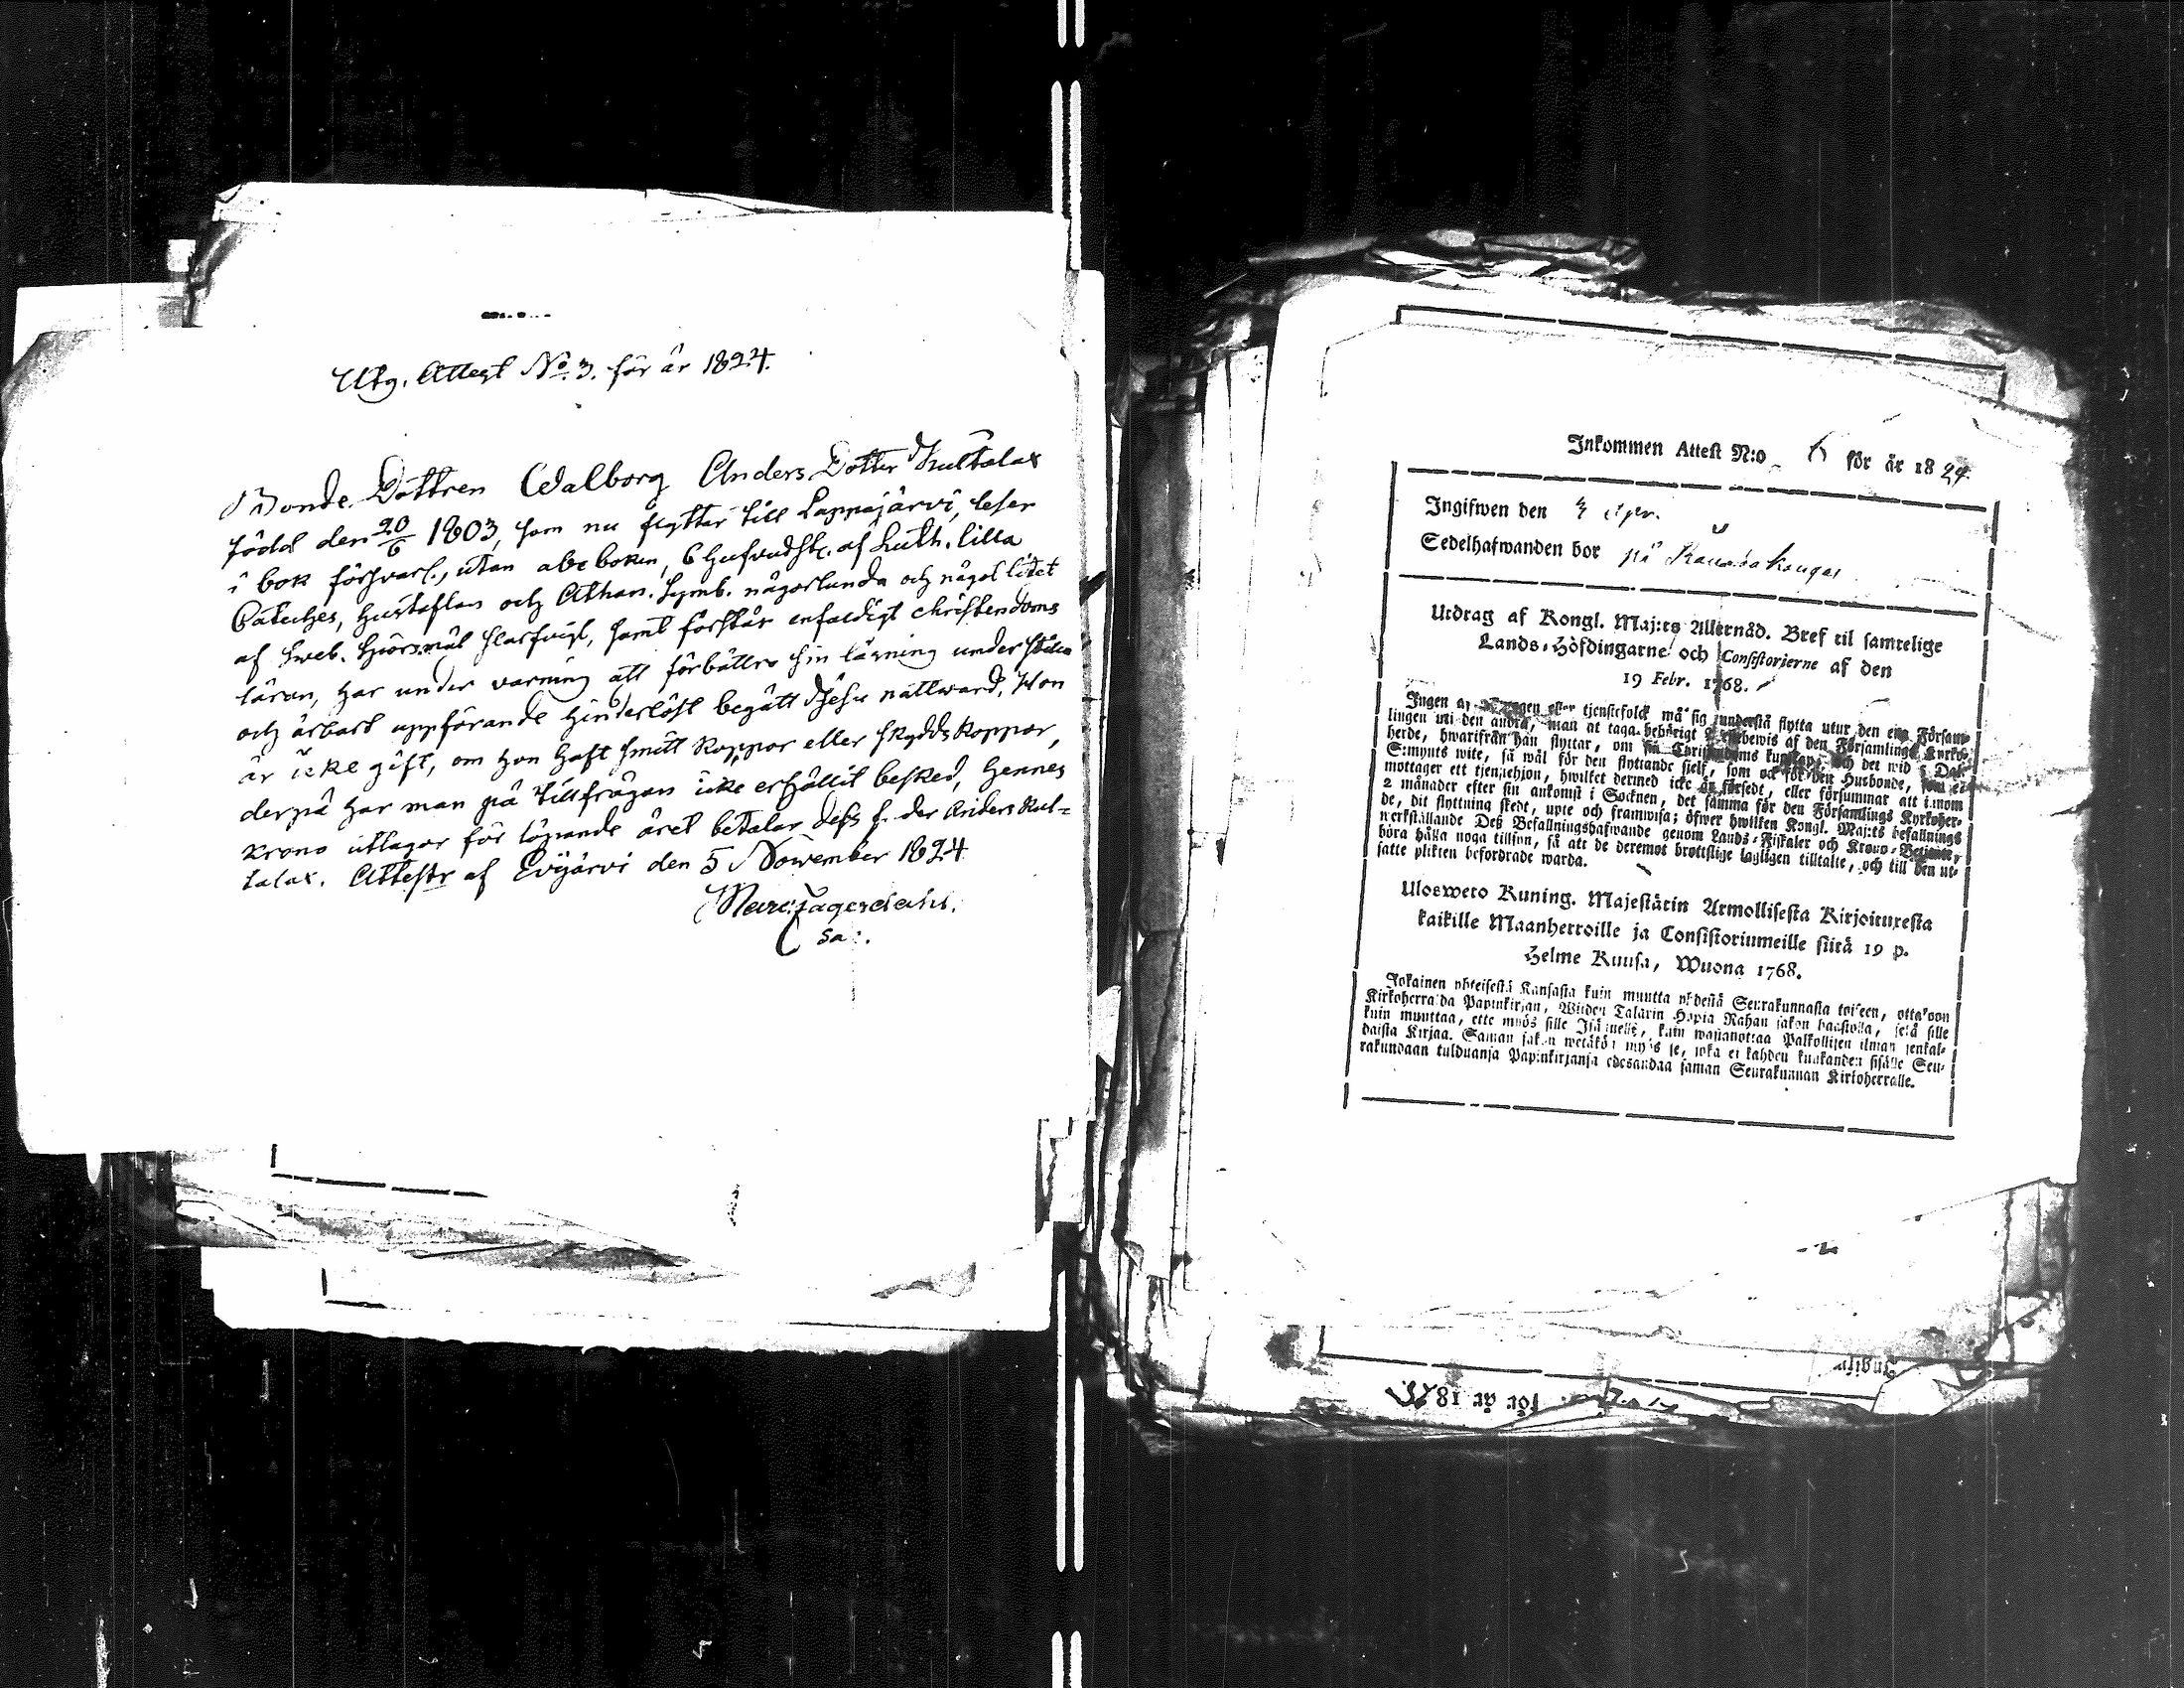 Utg. Attest No. 3. för år 1824.
Bonde Dottren Walborg Anders Dotter Kultalax
född den 20/6 1803, som nu flyttar till Lappajärvi, leser
i bok försvarl., utan abc boken, 6 hufvudst. af Luth. lilla
Cateches, hustaflan och Athan. Symb. någorlunda och något litet
af Sveb. spörsmål slarfvigt, samt förstår enfaldigt christendoms
läran, har under varning att förbättra sin läsning under
och ärbart uppförande hinderlöst begått Jesu nattward. Hon
är icke gift, om hon haft smitt koppor eller skydds koppor,
derpå har man på tillfrågan icke erhållit besked, hennes
krono utlagor för löpande året betalar dess f. der Anders Kul=
talax. Attestr af Evijärvi den 5 November 1824
Sa:.
Inkommen Attest N:o 6 för år 1824.
Ingifwen den Apr.
Sedelhafwanden bor på
Utdrag af Kongl. Maj:ts Allernåd. Bref til samtelige
Lands-Höfdingarne och Consistorierne af den
19 Febr. 1768.
Ingen eller tjenstefolck må sig understå flytta utur den ena Försam-
lingen uti den andra, man at taga behörigt bewis af den Församlings Kyrko-
herde, hwarifrån han flyttar, om sin Christendoms kunskap; och det wid 5 Dal.
S:mynts wite, så wäl för den flyttande sielf, som ock för den Husbonde, som
mottager ett tjenstehjon, hwilket dermed icke är försedt, eller försummar att inom
2 månader efter sin ankomst i Socknen, det samma för den Församlings Kyrkoher-
de, dit flyttning skedt, upte och framwisa; öfwer hwilken Kongl. Maj:ts befallnings
werkställande Deß Befallningshafwande genom Lands-Fiskaler och Krono-Betjente,
böra hålla noga tillsyn, så att de deremot brottslige lagligen tilltalte, och till den ut-
satte plikten befordrade warda.
Ulosweto Kuning. Majestätin Armollisesta Kirjoituxesta
kaikille Maanherroille ja Consistoriumeille siitä 19 p.
Helme Kuusa, Wuona 1768.
Jokainen yhteisestä Kansasta kuin muutta yhdestä Seurakunnasta toiseen, ottakoon
Kirkoherralda Papinkirjan, Wijden Talarin Hopia Rahan sakon haastolla, sekä sille
kuin muuttaa, ette myös sille Isännelle, kuin wastanottaa Palkollisen ilman senkal-
daista Kirjaa. Saman sakon wetäkön myös se, joka ei kahden kuukauden sisälle Seu-
rakundaan tulduansa Papinkirjansa edesandaa saman Seurakunnan Kirkoherralle.
för år 18